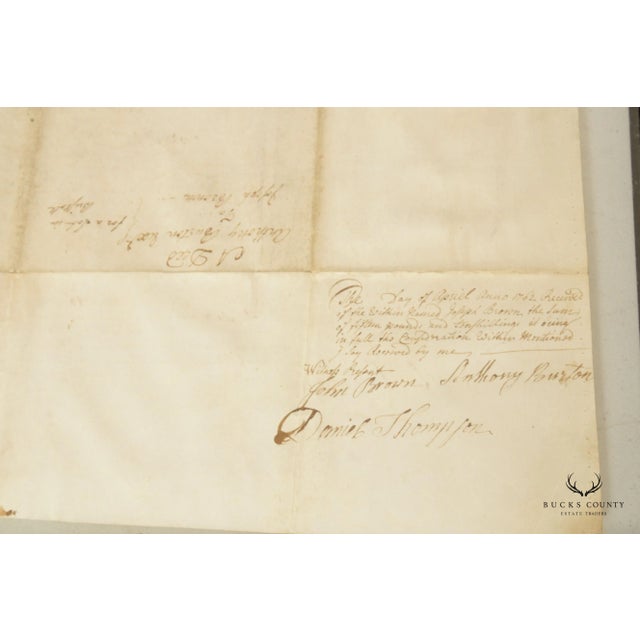 A Deed
Anthony Burton
To
Joseph Brown
for a Lott in
Bristoll
The Day of April Anno 1762 Received
of the Within Named Joseph Brown the Sum
of fifteen pounds and Ten shillings it being
in full the Consideration Within Mentioned
I Say Received by me
Witness Present
John Brown Anthony Burton
Daniel Thompson
BUCKS COUNTY
ESTATE TRADERS